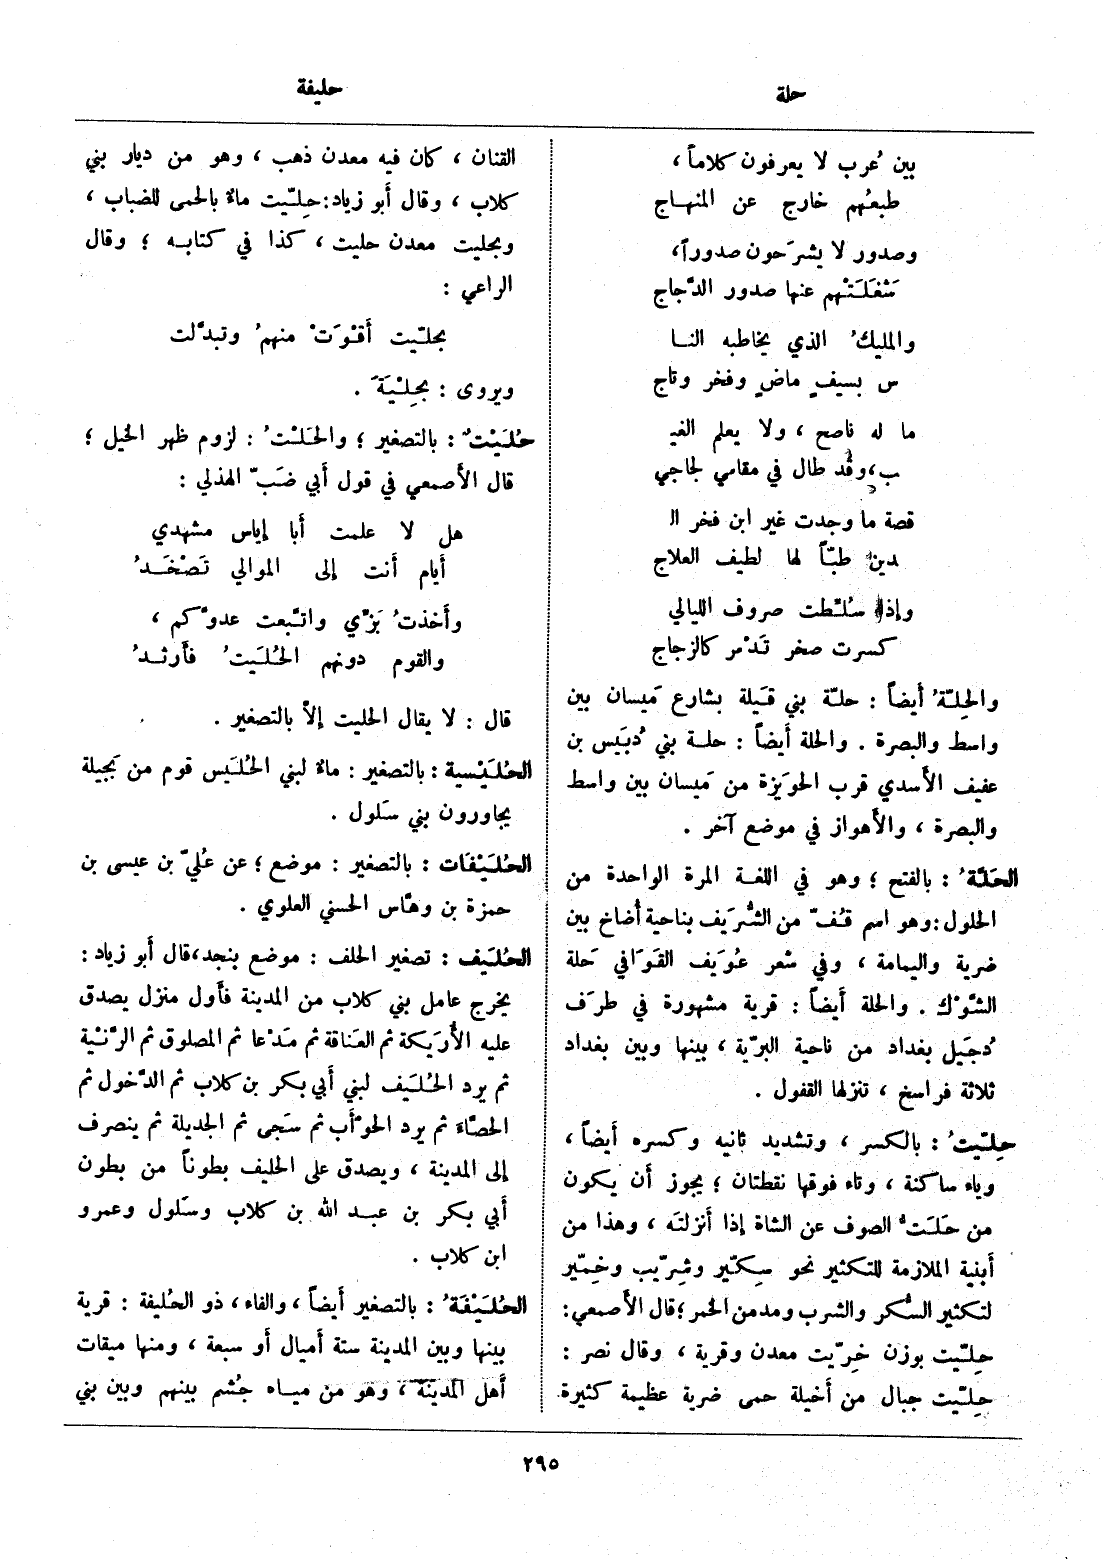 حلة
حليفة
بين عُرب لا يعرفون كلاماً ،
طبعُهم خارج عن المنهاج
وصدور لا يشرَحون صدوراً،
شغَلَتْهم عنها صدور الدَّجاج
والمليكُ الذي يخاطبه النا
س بسيفٍ ماضٍ وفخر وتاج
ما له ناصح ، ولا يعلم الغيـ
ب، وقد طال في مقامي لجاجي
قصة ما وجدت غير ابن فخر الـ
دين طبّاً لها لطيف العلاج
وإذا سُلّطت صروف الليالي
كسرت صخر تَدْمر كالزجاج
والحِلّةُ أيضاً : حلّة بني قَيلة بشارع مَيسان بين
واسط والبصرة . والحلة أيضاً : حلة بني دُبَيس بن
عفيف الأسدي قرب الحوَيزة من مَيسان بين واسط
والبصرة ، والأهواز في موضع آخر .
الحَلّةُ : بالفتح ؛ وهو في اللغة المرة الواحدة من
الحلول : وهو اسم قُفّ من الشُّرَيف بناحية أُضاخ بين
ضرية واليمامة ، وفي شعر عُوَيف القَوَافي حَلة
الشَّوْك . والحلة أيضاً : قرية مشهورة في طرَف
دُجَيل بغداد من ناحية البرّية ، بينها وبين بغداد
ثلاثة فراسخ ، تنزلها القفول .
حِلِّيتُ : بالكسر ، وتشديد ثانيه وكسره أيضاً ،
وياء ساكنة ، وتاء فوقها نقطتان ؛ يجوز أن يكون
من حَلَتُّ الصوف عن الشاة إذا أنزلته ، وهذا من
أبنية الملازمة للتكثير نحو سِكّير وشِرّيب وخمّير
لتكثير السُّكر والشرب ومدمن الخمر ؛ قال الأصمعي :
حِلّيت بوزن خِرّيت معدن وقرية ، وقال نصر :
حِلّيت جبال من أخيلة حمى ضرية عظيمة كثيرة
القنان ، كان فيه معدن ذهب ، وهو من ديار بني
كلاب ، وقال أبو زياد: حِلِّيت ماءٌ بالحمى للضباب ،
وبحليت معدن حليت ، كذا في كتابه ؛ وقال
الراعي :
بحلّيت أقْوَتْ منهمُ وتبدَّلت
ويروى : بحِلْيَةَ .
حُلَيْتٌ : بالتصغير ؛ والحَلْتُ : لزوم ظهر الخيل ؛
قال الأصمعي في قول أبي ضَبّ الهذلي :
هل لا علمت أبا إياس مشهدي
أيام أنت إلى الموالي تَصْخَدُ
وأخذتُ بَزّي واتّبعت عدوَّكم ،
والقوم دونهم الحُلَيتُ فأرثدُ
قال : لا يقال الحليت إلاّ بالتصغير .
الحُلَيْسية : بالتصغير : ماءٌ لبني الحُلَيس قوم من بَجيلة
يجاورون بني سَلول .
الحُلَيْفَات : بالتصغير : موضع ؛ عن عُليّ بن عيسى بن
حمزة بن وهّاس الحسني العلوي .
الحُلَيف : تصغير الحلف : موضع بنجد، قال أبو زياد :
يخرج عامل بني كلاب من المدينة فأول منزل يصدق
عليه الأُرَيكة ثم العَناقة ثم مَدْعا ثم المصلوق ثم الرَّنْية
ثم يرد الحُلَيف لبني أبي بكر بن كلاب ثم الدَّخول ثم
الحصّاء ثم يرد الحوْأب ثم سَجى ثم الجديلة ثم ينصرف
إلى المدينة ، ويصدق على الحليف بطوناً من بطون
أبي بكر بن عبد الله بن كلاب وسَلول وعمرو
ابن كلاب .
الحُلَيْفَةُ : بالتصغير أيضاً ، والفاء ، ذو الحُليفة : قرية
بينها وبين المدينة ستة أميال أو سبعة ، ومنها ميقات
أهل المدينة ، وهو من مياه جُشم بينهم وبين بني
٢٩٥